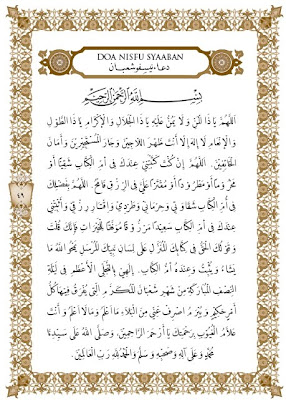 DOA NISFU SYAABAN
دعاء نيسفو شعبان
بِسْمِ اللَّهِ الرَّحْمَنِ الرَّحِيمِ
اَللَّهُمَّ يَا ذَا الْمَنِّ وَلَا يُمَنُّ عَلَيْهِ يَا ذَا الْجَلَالِ وَالْإِكْرَامِ يَا ذَا الطَّوْلِ
وَالْإِنْعَامِ لَا إِلَهَ إِلَّا أَنْتَ ظَهْرَ اللَّاجِينَ وَجَارَ الْمُسْتَجِيْرِيْنَ وَأَمَانَ
الْخَائِفِينَ. اَللَّهُمَّ إِنْ كُنْتَ كَتَبْتَنِي عِنْدَكَ فِي أُمِّ الْكِتَابِ شَقِيًّا أَوْ
مَحْرُومًا أَوْ مَطْرُودًا أَوْ مُقَتَّرًا عَلَيَّ فِي الرِّزْقِ فَامْحُ. اَللَّهُمَّ بِفَضْلِكَ
فِي أُمِّ الْكِتَابِ شَقَاوَتِي وَحِرْمَانِي وَطَرْدِي وَاقْتَارَ رِزْقِي وَأَثْبِتْنِي
عِنْدَكَ فِي أُمِّ الْكِتَابِ سَعِيدًا مَرْزُوقًا مُوَفَّقًا لِلْخَيْرَاتِ فَإِنَّكَ قُلْتَ
وَقَوْلُكَ الْحَقُّ فِي كِتَابِكَ الْمُنْزَلِ عَلَى لِسَانِ نَبِيِّكَ الْمُرْسَلِ يَمْحُو اللهُ مَا
يَشَاءُ وَيُثْبِتُ وَعِنْدَهُ أُمُّ الْكِتَابِ. إِلَهِيْ بِالتَّجَلِّي الْأَعْظَمِ فِي لَيْلَةِ
النِّصْفِ الْمُبَارَكَةِ مِنْ شَهْرِ شَعْبَانَ الْمُكَرَّمِ الَّتِي يُفْرَقُ فِيهَا كُلُّ
أَمْرٍ حَكِيْمٍ وَيُبْرَمُ اصْرِفْ عَنِّي مِنَ الْبَلَاءِ مَا أَعْلَمُ وَمَا لَا أَعْلَمُ وَأَنْتَ
عَلَّامُ الْغُيُوْبِ بِرَحْمَتِكَ يَا أَرْحَمَ الرَّاحِمِيْنَ. وَصَلَّى اللهُ عَلَى سَيِّدِنَا
مُحَمَّدٍ وَعَلَى آلِهِ وَصَحْبِهِ وَسَلَّمَ وَالْحَمْدُ لِلَّهِ رَبِّ الْعَالَمِيْنَ.